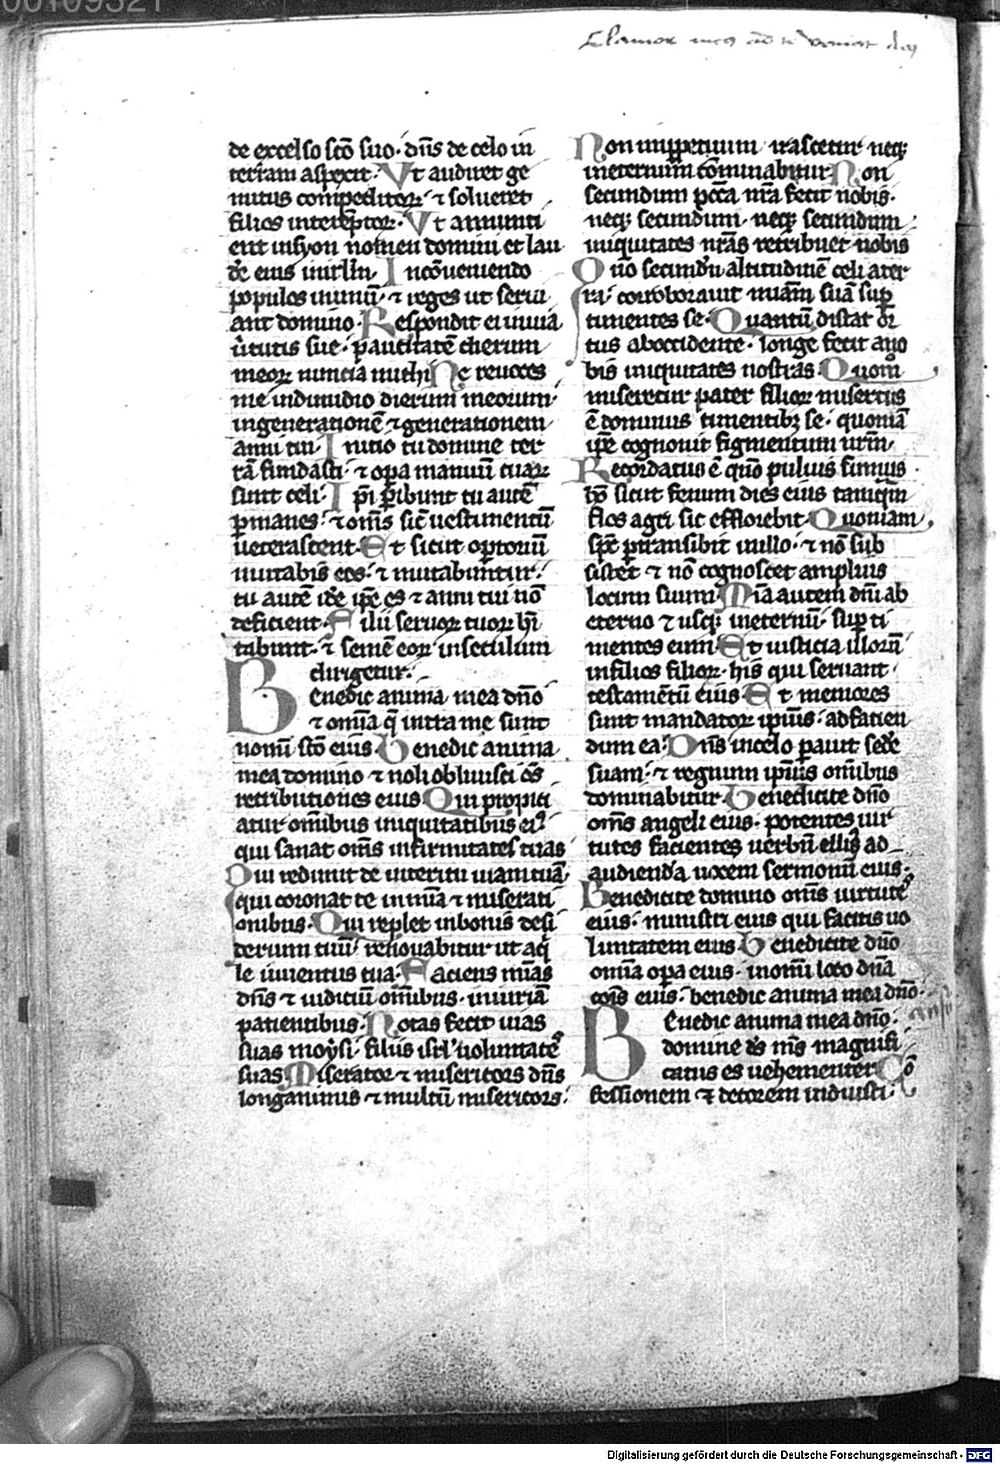 00109321
Clamor meꝰ ad te veniat
de excelso scō suo· dn̄s de celo in
terram aspexit· Vt audiret ge
mitus compeditoꝝ· ⁊ solueret
filios interēptoꝝ· Vt annunti
ent insyon nomen domini et lau
dē eius inirl̄m· In cōueniendo
populos inunū· ⁊ reges ut serui
ant domino· Respondit ei inuia
ūtutis sue· paucitatē dierum
meoꝝ nuncia michi Ne reuoces
me indimidio dierum meorum·
ingenerationē ⁊ generationem
anni tui· Initio tu domine ter
rā fundasti· ⁊ oꝑa manuū tuaꝝ
sunt celi· Ip̄i ꝑibunt tu autē
ꝑmanes· ⁊ om̄s sic̄ uestimentū
ueterascent· Et sicut oꝑtoriū
mutabis eos· ⁊ mutabuntur·
tu autē idē ip̄e es ⁊ anni tui nō
deficient· Filii seruoꝝ tuoꝝ hī
tabunt· ⁊ semē eoꝝ insecilum
dirigetur·
Benedic anima mea dn̄o
⁊ omīa q̄ intra me sunt
nomī scō eius Benedic anima
mea domino ⁊ noli obliuisci ōs
retributiones eius Qui propici
atur omībus iniquitatibus
qui sanat om̄s infirmitates tuas
Qui redimit de interitu uitam tuā·
qui coronat te in mīa ⁊ miserati
onibus· Qui replet inbonis desi
derium tuū· renouabitur ut aq̄
le iuuentus tua· Faciens mīas
dn̄s ⁊ iudiciū omībus· iniuriā
patientibus· Notas fecit uias
suas moysi· filiis isrl̄ uoluntatē
suas Miserator ⁊ misericors dn̄s
longanimis ⁊ multū misericors·
Non inꝑpetuum irascetur neqꝫ
ineternum cōminabitur Non
secundum pcc̄a nr̄a fecit nobis·
neqꝫ secundum· neqꝫ secundum
iniquitates nr̄as retribuet nobis
Qn̄o secundū altitudinē celi ater
ra· corroborauit mīam suā suꝑ
timentes se· Quantū distat or
tus aboccidente· longe fecit a no
bis iniquitates nostras Quom̄
miseretur pater filioꝝ misertus
ē dominus timentibꝫ se· quoniā
ip̄e cognouit figmentum nr̄m·
Recordatus ē qn̄o puluis sumus·
hō sicut fenum dies eius tamqm̄
flos agri sic effloriebit· Quoniam
sp̄c ꝑtransibit inillo· ⁊ nō sub
sistet ⁊ nō cognoscet amplius
locum suum· Mīa autem dn̄i ab
eterno ⁊ usqꝫ ineternū· suꝑ ti
mentes eum· Et iusticia illorū
infilios filioꝝ· his qui seruant·
testamētū eius· Et memores
sunt mandatoꝝ ipīus· adfacien
dum ea· Dn̄s incelo ꝑauit sedē
suam· ⁊ regnum ipīus omībus
dominabitur· Benedicite dn̄o
om̄s angeli eius· potentes uir
tutes facientes uerbū ad
audiendā uocem sermonū eius·
Benedicite domino om̄s uirtutes
eius· ministri eius qui facitis uo
luntatem eius· Benedicite dn̄o
omīa oꝑa eius· inomī loco dn̄a
cois eius· benedic anima mea dn̄o·
Benedic anima mea dn̄o·
domine ds̄ ms̄ magnifi
catus es uehementer Cō
fessionem ⁊ decorem induisti·
Digitalisierung gefördert durch die Deutsche Forschungsgemeinschaft - DFG